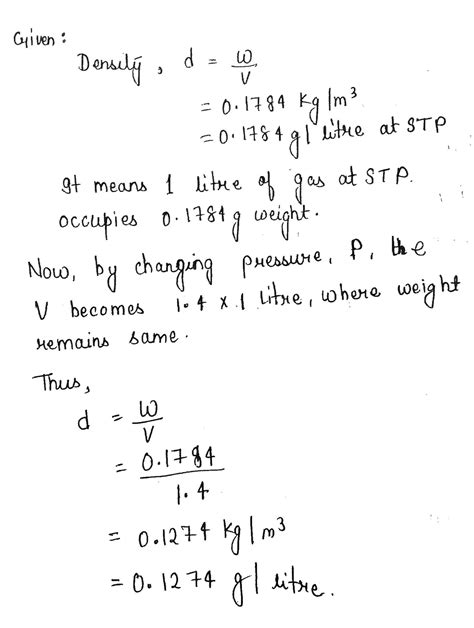 Given :
Density, d = w/V
= 0.1784 kg/m³
= 0.1784 g/litre at STP
It means 1 litre of gas at STP.
occupies 0.1784 g weight.
Now, by changing pressure, P, the
V becomes 1.4 x 1 litre, where weight
remains same.
Thus,
d = w/V
= 0.1784/1.4
= 0.1274 kg/m³
= 0.1274 g/litre.